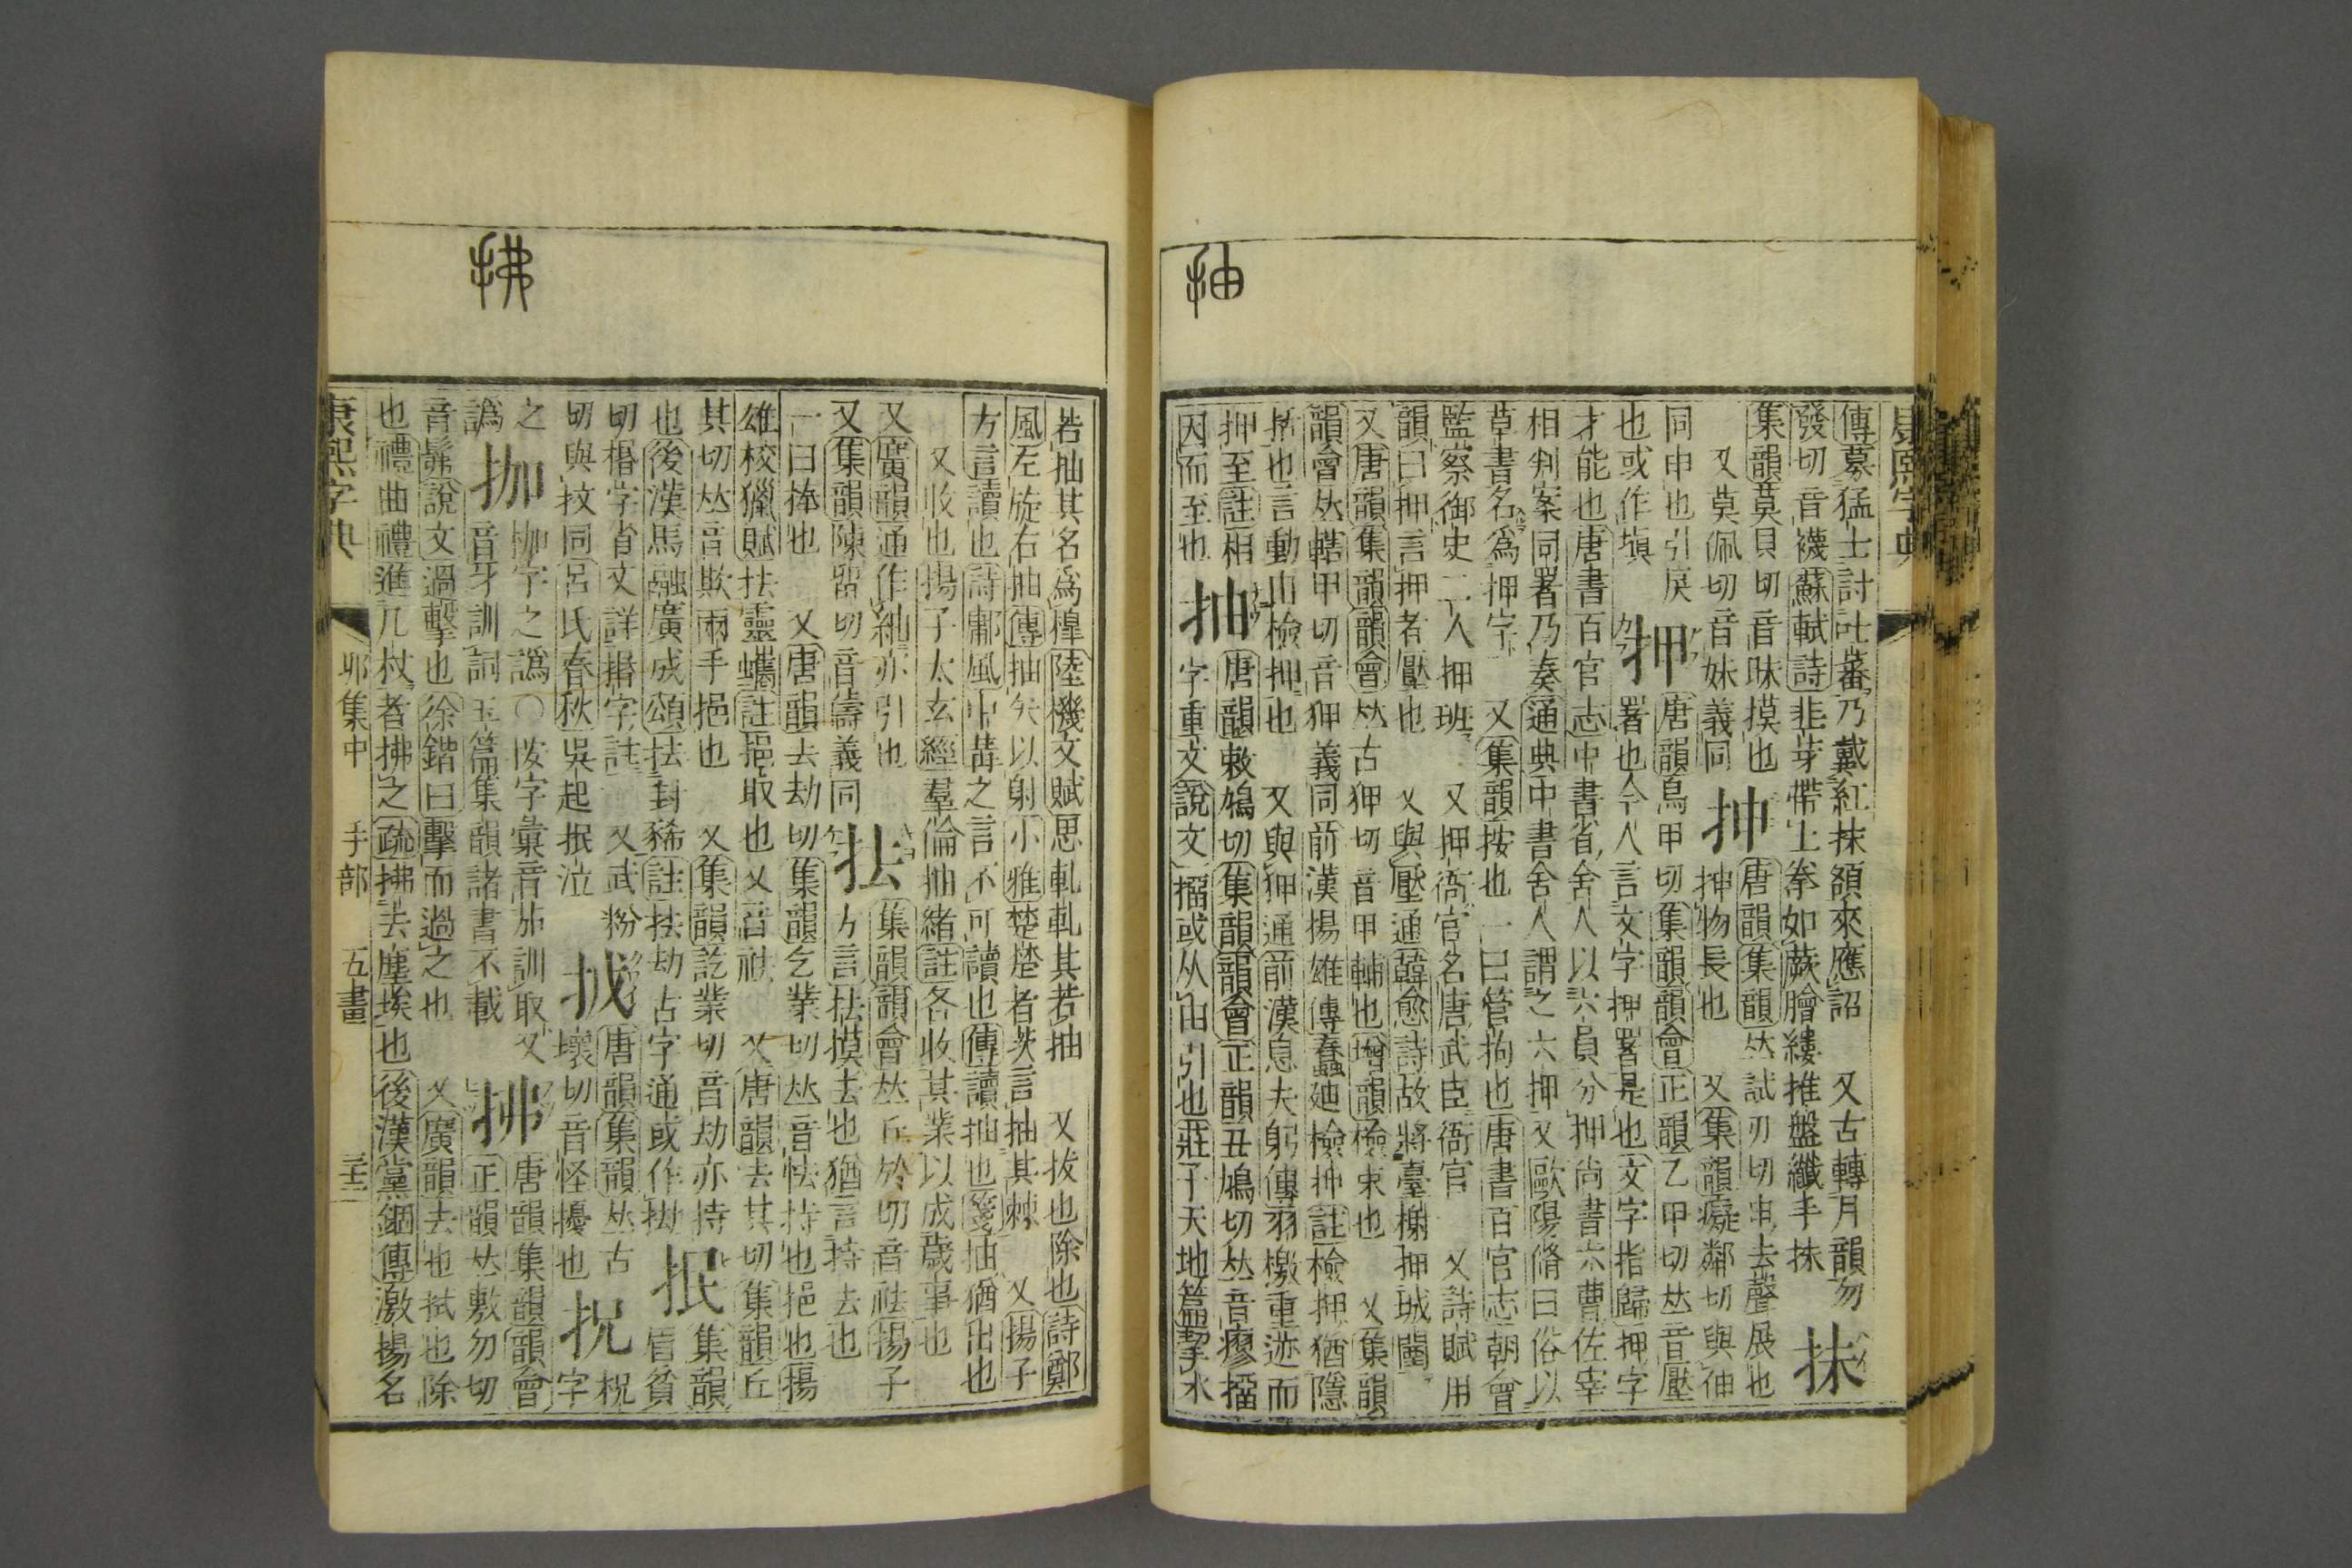 抽
傳募猛士討吐蕃乃戴紅抹額來應詔 又古轉月韻勿
發切音襪蘇軾詩非芽帶土拳如蕨膾縷堆盤纖手抹 抹
集韻莫貝切音昧摸也 抻 唐韻集韻𠀤試刃切申去聲展也
又莫佩切音妹義同 抻物長也 又集韻癡鄰切與伸
同申也引戾 押 唐韻烏甲切集韻韻會正韻乙甲切𠀤音壓
也或作塡 署也今人言文字押署是也文字指歸押字
才能也唐書百官志中書省舍人以六員分押尚書六曹佐宰
相判案同署乃奏通典中書舍人謂之六押又歐陽脩曰俗以
草書名爲押字 又集韻按也一曰管拘也唐書百官志朝會
監察御史二人押班 又押衙官名唐武臣衙官 又詩賦用
韻曰押言押者壓也 又與壓通韓愈詩故將臺榭押城闉
又唐韻集韻韻會𠀤古狎切音甲輔也增韻檢束也 又集韻
韻會𠀤轄甲切音狎義同前漢揚雄傳蠢廸檢押註檢押猶隱
括也言動由檢押也 又與狎通前漢息夫躬傳羽檄重迹而
押至註相 抽 唐韻敕鳩切集韻韻會正韻丑鳩切𠀤音瘳㩅
因而至也 字重文說文㩅或从由引也莊子天地篇挈水
康熙字典
若抽其名爲槹陸機文賦思軋軋其若抽 又拔也除也詩鄭
風左旋右抽傳抽矢以射小雅楚楚者茨言抽其棘 又揚子
方言讀也詩鄘風中冓之言不可讀也傳讀抽也箋抽猶出也
又收也揚子太玄經羣倫抽緒註各收其業以成歲事也
又廣韻通作紬亦引也 抾 集韻韻會𠀤丘於切音祛揚子
又集韻陳留切音籌義同 方言抾摸去也猶言持去也
一曰捧也 又唐韻去劫切集韻乞業切𠀤音怯持也挹也揚
雄校獵賦抾靈蠵註挹取也又音祛 又唐韻去其切集韻丘
其切𠀤音欺兩手挹也 又集韻訖業切音劫亦持 抿 集韻
也後漢馬融廣成頌抾封豨註抾劫古字通或作抛 眉貧
切㨉字省文詳㨉字註 又武粉 㧟 唐韻集韻𠀤古 柷
切與抆同呂氏春秋吳起抿泣 壞切音怪擾也 字
之 拁 拁字之譌〇按字彙音茄訓取又 拂 唐韻集韻韻會
譌 音牙訓訶玉篇集韻諸書不載 正韻𠀤敷勿切
音髴說文過擊也徐鍇曰擊而過之也 又廣韻去也拭也除
也禮曲禮進几杖者拂之疏拂去塵埃也後漢黨錮傳激揚名
康熙字典 卯集中 手部 五畫
拂